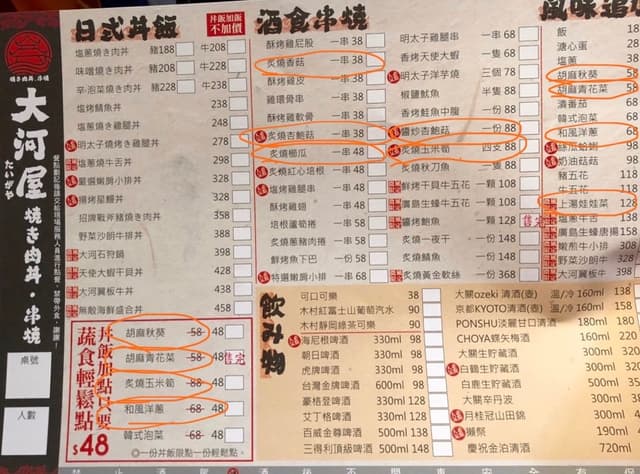 燒き肉丼.串燒
大河屋
たいがや
燒き肉丼・串燒
餐點劃記後請交給現場服務人員進行點餐，禁帶外食，謝謝！
桌號
人數
日式丼飯
丼飯加飯不加價
塩蔥燒き肉丼 豬188 牛208
味噌燒き肉丼 豬208 牛228
辛泡菜燒き肉丼 豬228 牛238
塩烤鯖魚丼 238
塩蔥燒き雞腿丼 248
明太子燒烤雞腿丼 278
塩蔥燒き牛舌丼 328
嚴選嫩肩小排丼 328
醬燒鰻魚丼 358
招牌戰斧豬燒き肉丼 358
野菜沙朗牛排丼 388
大河石狩鍋 388
天使大蝦干貝丼 428
大河翼板牛丼 428
無敵海鮮盛合丼 458
丼飯加點只要
蔬食輕鬆點
$48
胡麻秋葵 58 48
胡麻青花菜 58 48 售完
炙燒玉米筍 68 48
和風洋蔥 68 48
韓式泡菜 58 48
◎一份丼飯限點一份輕鬆點。
酒食串燒
酥烤雞屁股 一串 38
炙燒香菇 一串 38
酥烤雞皮 一串 38
雞環骨串 一串 38
酥烤雞軟骨 一串 38
炙燒杏鮑菇 一串 38
炙燒櫛瓜 一串 48
炙燒紅心培根 一串 48
塩蔥雞腿串 一串 48
酥烤雞翅 一串 48
培根蘆筍捲 一串 58
塩蔥豬肉捲 一串 58
鮮烤魚下巴 一份 58
特選嫩肩小排 一串 68
明太子雞腿串 一串 68
香烤天使大蝦 一隻 68
明太子洋芋燒 三個 78
椒鹽魷魚 半隻 88
香烤鮭魚中腹 一份 88
醬炒杏鮑菇 一份 88
炙燒玉米筍 四支 88
炙燒秋刀魚 一隻 88
鮮烤干貝牛五花 一顆 108
廣島生蠔牛五花 一顆 108
醬烤鮑魚 一顆 128 售完
炙燒一夜干 一份 148
炙燒鯖魚 一份 148
炙燒黃金軟絲 一份 368
風味追加
飯 18
溏心蛋 28
塩蔥 38
胡麻秋葵 58
胡麻青花菜 58
漬番茄 68
韓式泡菜 68
和風洋蔥 68
絲瓜蛤蜊 98
奶油菇菇 98
豬五花 118
牛五花 118
上湯娃娃菜 128
塩蔥牛舌 138
廣島生蠔唐揚 158
嫩煎牛小排 308
野菜沙朗牛排 328
大河翼板牛排 398
飲み物
可口可樂 38
木村紅富士山葡萄汽水 90
木村靜岡綠茶可樂 90
海尼根啤酒 330ml 98
朝日啤酒 330ml 98
虎牌啤酒 330ml 98
台灣金牌啤酒 600ml 98
豪格登啤酒 330ml 128
艾丁格啤酒 330ml 128
百威金尊啤酒 500ml 138
三得利頂級啤酒 500ml 148
大關ozeki 清酒(壺) 溫/冷 160ml 138
京都KYOTO 清酒(壺) 溫/冷 160ml 158
PONSHU淡麗甘口清酒 180ml 180
CHOYA蝶矢梅酒 160ml 220
大關生貯藏酒 300ml 350
白鶴生貯藏酒 300ml 380
白鹿生貯藏酒 300ml 380
大關辛丹波 300ml 450
月桂冠山田錦 300ml
獺祭 300ml
慶祝金泊清酒 720ml